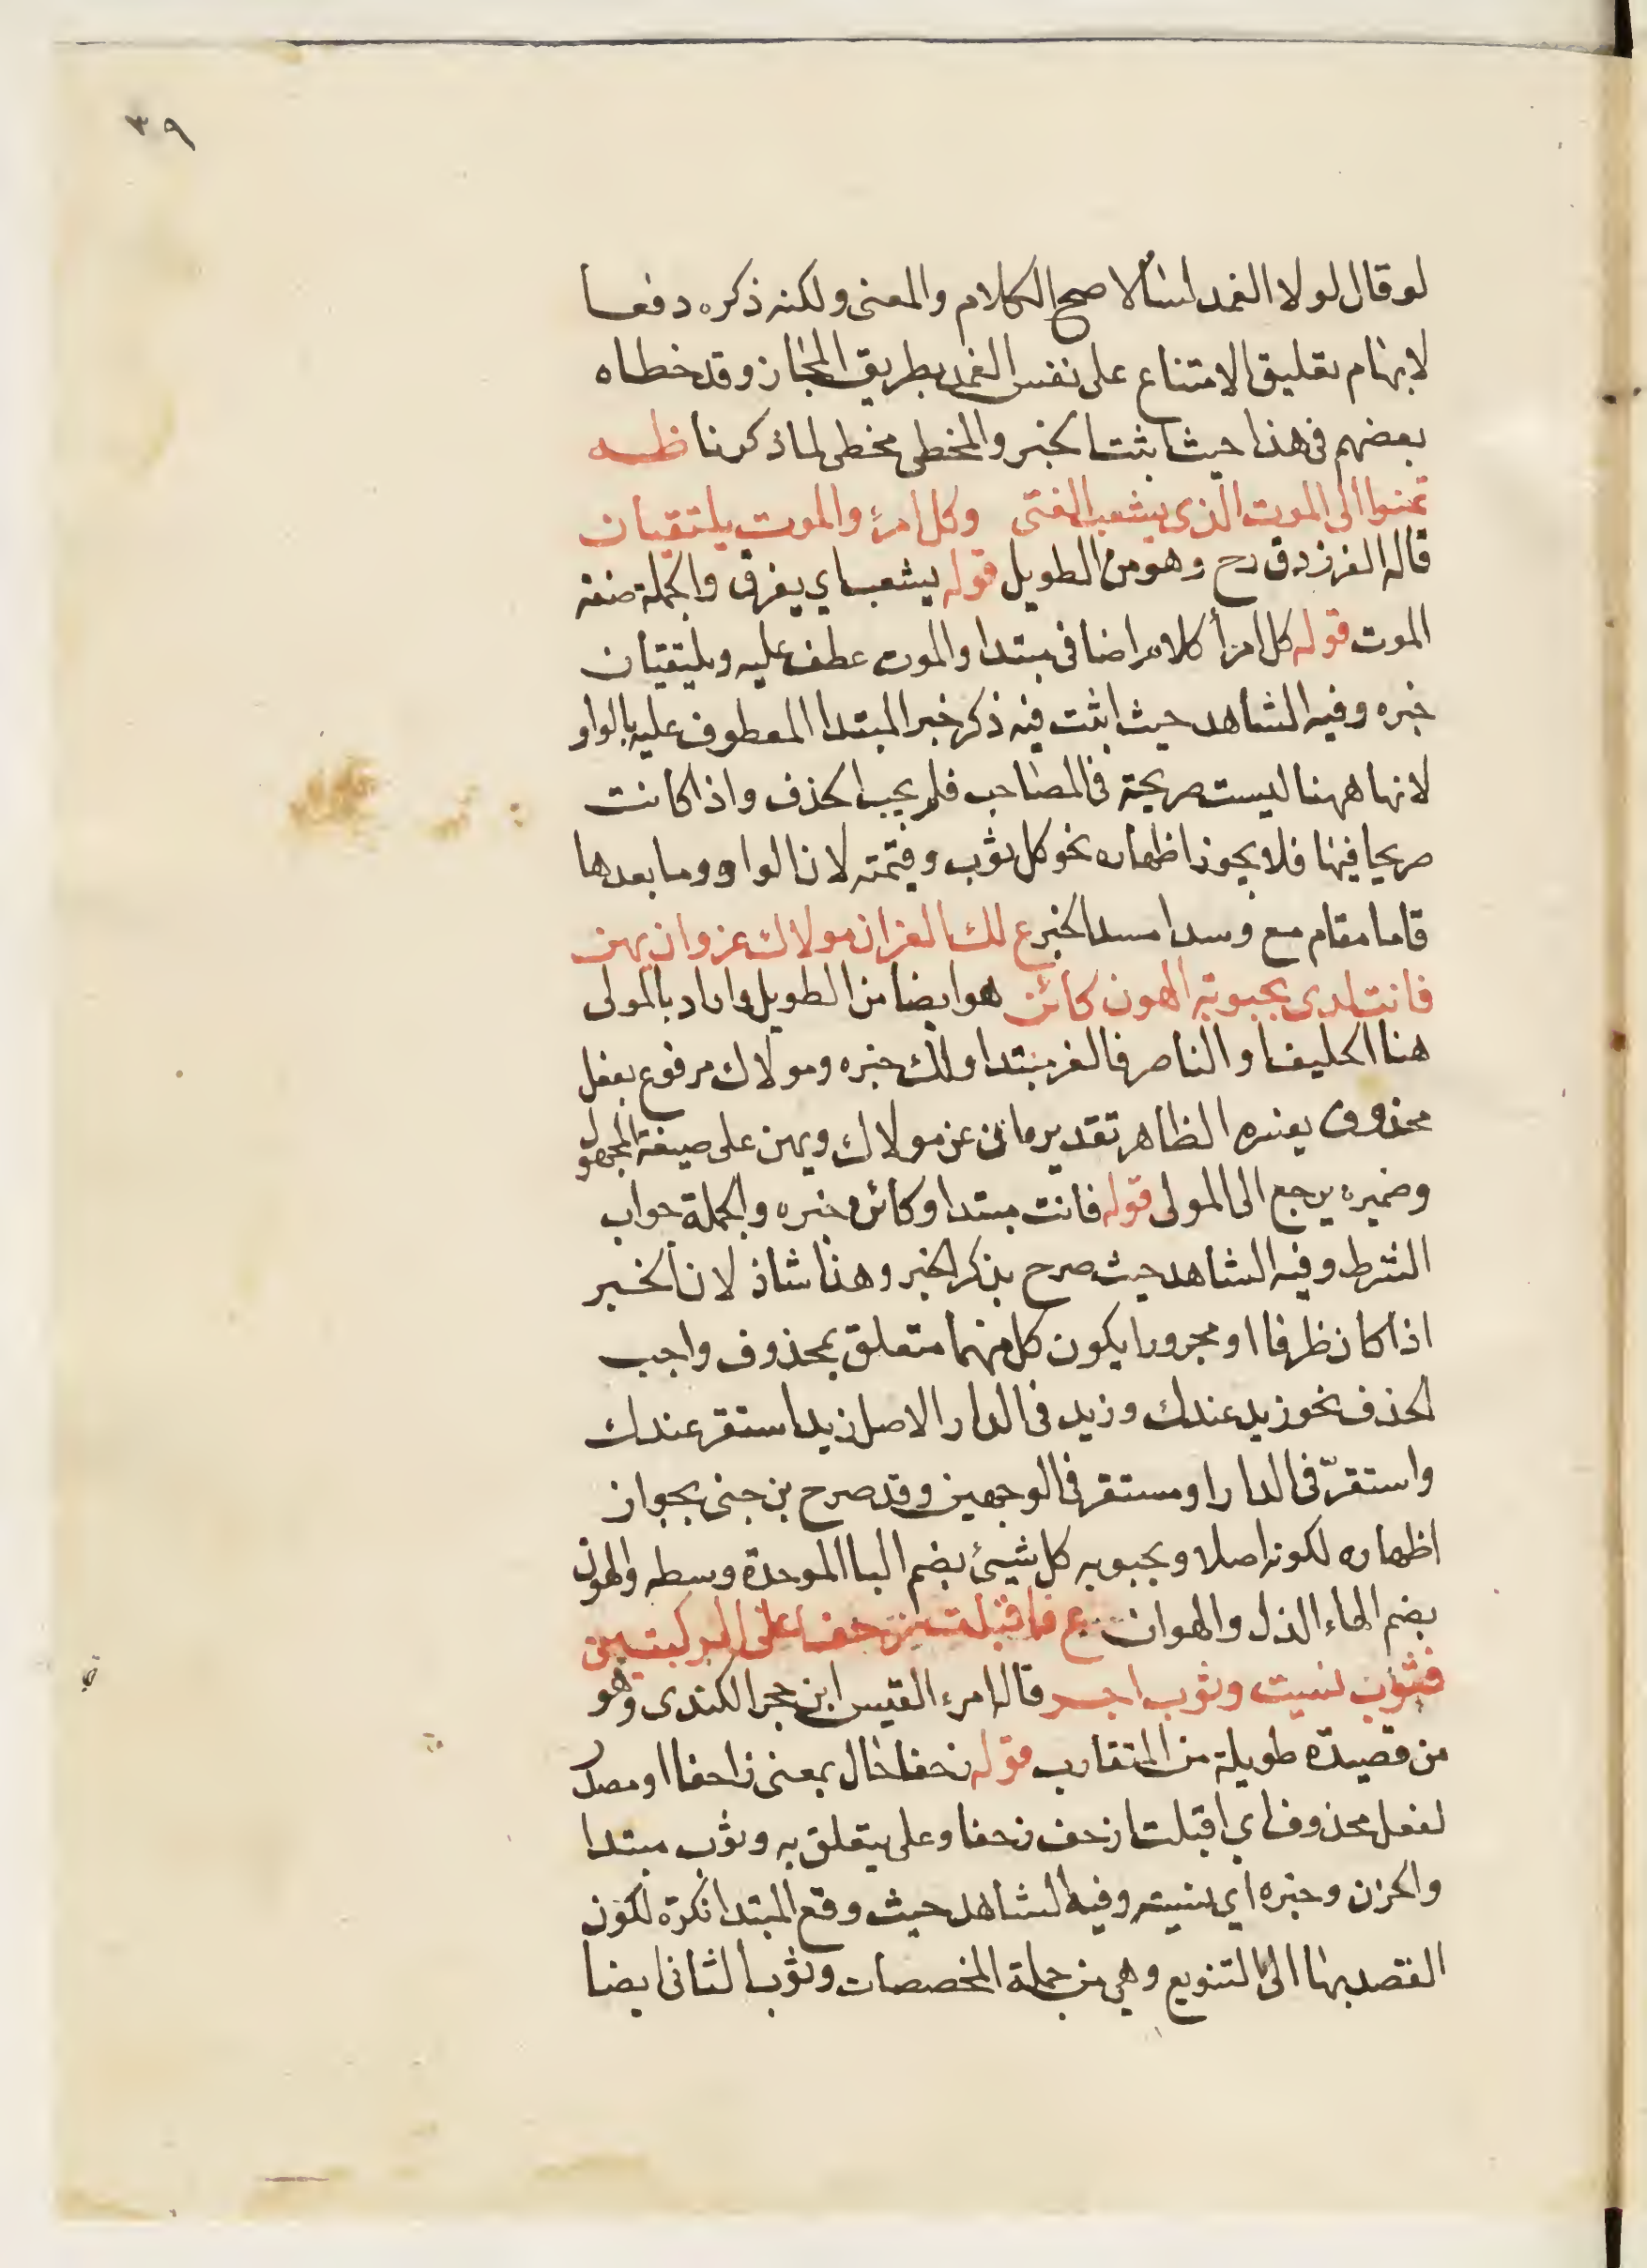 ٣٩
لو قال لولا الغمد لسالا صح الكلام والمعنى ولكنه ذكره دفعا
لابهام تعليق الامتناع على نفس الغمد بطريق المجاز وقد خطاه
بعضهم فى هذا حيث اثبت الخبر والمخطى مخطى لما ذكرنا ظه
تمنوا الى الموت الذى يشعب الفتى وكل امرئ والموت يلتقيان
قاله الفرزدق رح وهو من الطويل قوله يشعب اي يفرق والجملة صفة
الموت قوله كل امرأ كلام اضافى مبتدا والموت عطف عليه ويلتقيان
خبره وفيه الشاهد حيث اثبت فيه ذكر خبر المبتدا المعطوف عليه بالواو
لانها ههنا ليست صريحة فى المصاحب فلم يجب الحذف واذا كانت
صريحا فيها فلا يجوز اظهاره نحو كل ثوب وقيمته لان الواو وما بعدها
قاما مقام مع وسدا مسد الخبر ع لك العز ان مولاك عز وان يهن
فانت لدى بحبوبة الهون كائن هو ايضا من الطويل واراد بالمولى
هنا الحليف او الناصر فالعز مبتدا ولك خبره ومولاك مرفوع بفعل
محذوف يفسره الظاهر تقديره ان عز مولاك ويهن على صيغة المجهول
وضميره يرجع الى المولى قوله فانت مبتدا وكائن خبره والجملة جواب
الشرط وفيه الشاهد حيث صرح بذكر الخبر وهذا شاذ لان الخبر
اذا كان ظرفا او مجرورا يكون كل منهما متعلق بمحذوف واجب
الحذف نحو زيد عندك وزيد فى الدار الاصل زيد استقر عندك
واستقرّ فى الدار او مستقر فى الوجهين وقد صرح بن جنى بجواز
اظهاره لكونه اصلا وبحبوبه كل شيئ بضم البا الموحدة وسطه والهون
بضم الهاء الذل والهوان ع فاقبلت زحفا على الركبتين
فثوب نسيت وثوب اجر قاله امرء القيس ابن حجر الكندى وهو
من قصيدة طويلة من المتقارب قوله زحفا حال بمعنى زاحفا او مصدر
لفعل محذوف اي اقبلت ازحف زحفا وعلى يتعلق به وثوب مبتدا
والحزن وخبره اي نسيته وفيه الشاهد حيث وقع المبتدا نكرة لكون
القصد بها الى التنويع وهي من جملة المخصصات وثوب الثانى ايضا